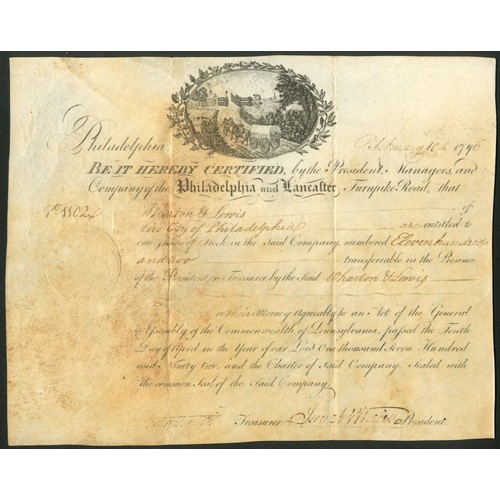 Philadelphia February 10th 1796
BE IT HEREBY CERTIFIED, by the President, Managers, and
Company of the Philadelphia and Lancaster Turnpike Road, that
No. 1102 Wharton & Lewis of
the City of Philadelphia are entitled to
one share of Stock in the Said Company, numbered Eleven hundred
and two transferrable in the Presence
of the President, or Treasurer, by the Said Wharton & Lewis
Attorney Agreeably to an Act of the General
Assembly of the Commonwealth of Pennsylvania, passed the Tenth
Day of April in the Year of our Lord One thousand seven Hundred
and Ninety two, and the Charter of Said Company, Sealed with
the common Seal of the Said Company.
Treasurer President